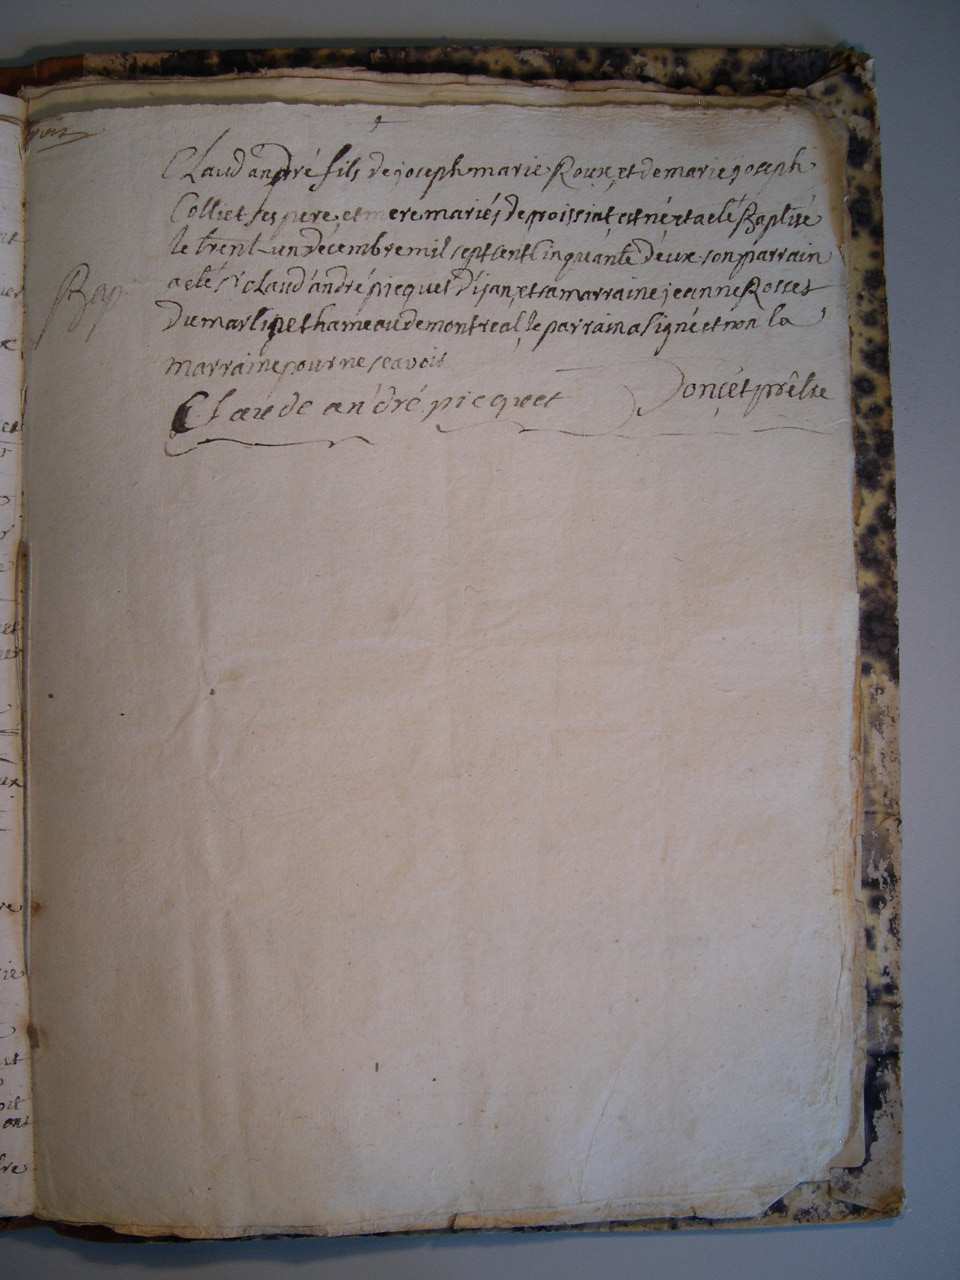 Claud andré fils de joseph marie Roux, et de marie joseph
Colliet ses pere et mere mariés de proissiat est né et a eté Baptisé
le trent un décembre mil sept cent cinquante deux son parrain
Bap
a eté Sr Claud andré picquet d'isan, et sa marraine jeanne Rosset
du marlipet hameau de montreal, le parrain a signé et non la
marraine pour ne scavoir
Claude andré picquet Doncet prêtre